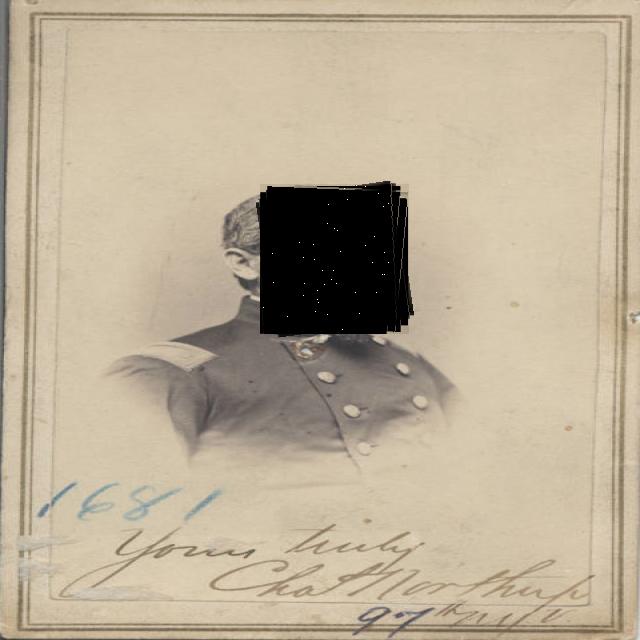 1681
Yours truly
Chas Northrup
97th NYV